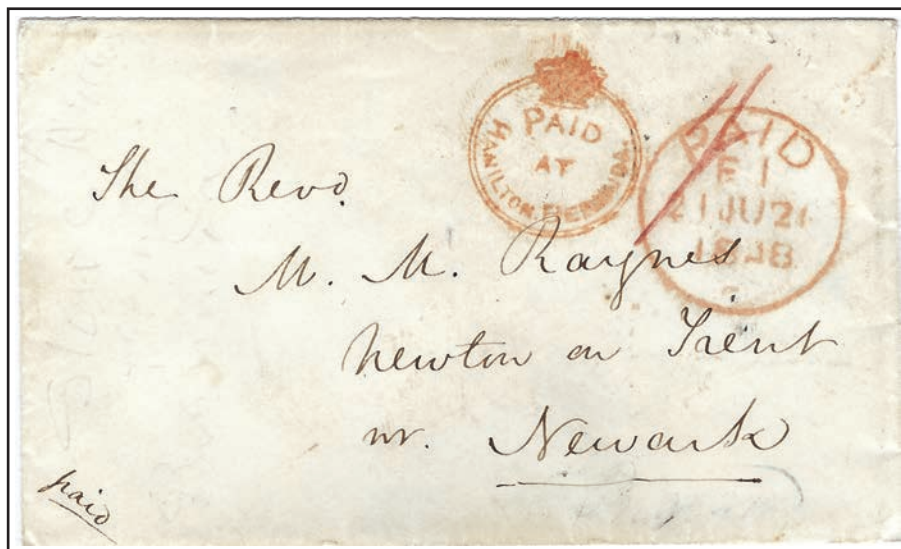 PAID
AT
HAMILTON. BERMUDA.
PAID
F 1
21 JU 21
1848
The Revd.
M. M. Raynes
Newton on Trent
nr. Newark
paid